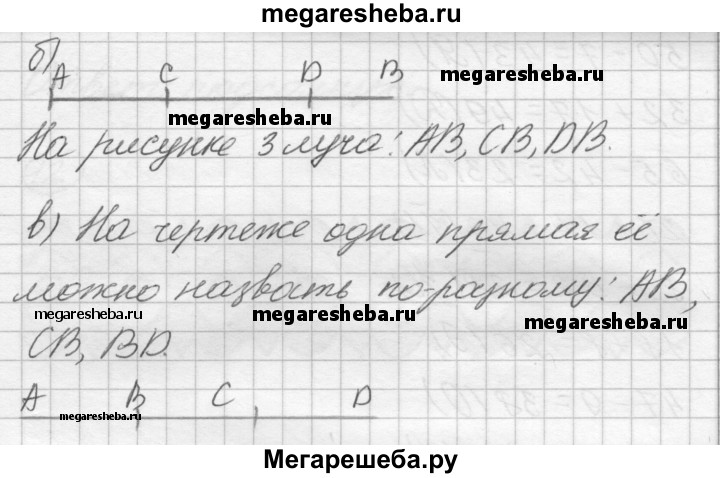 megaresheba.ru
б)
A C D B megaresheba.ru
megaresheba.ru
На рисунке 3 луча: AB, CB, DB.
в) На чертеже одна прямая её
можно назвать по-разному: AB,
megaresheba.ru megaresheba.ru megaresheba.ru
CB, BD.
A B C D
megaresheba.ru
Мегарешеба.ру